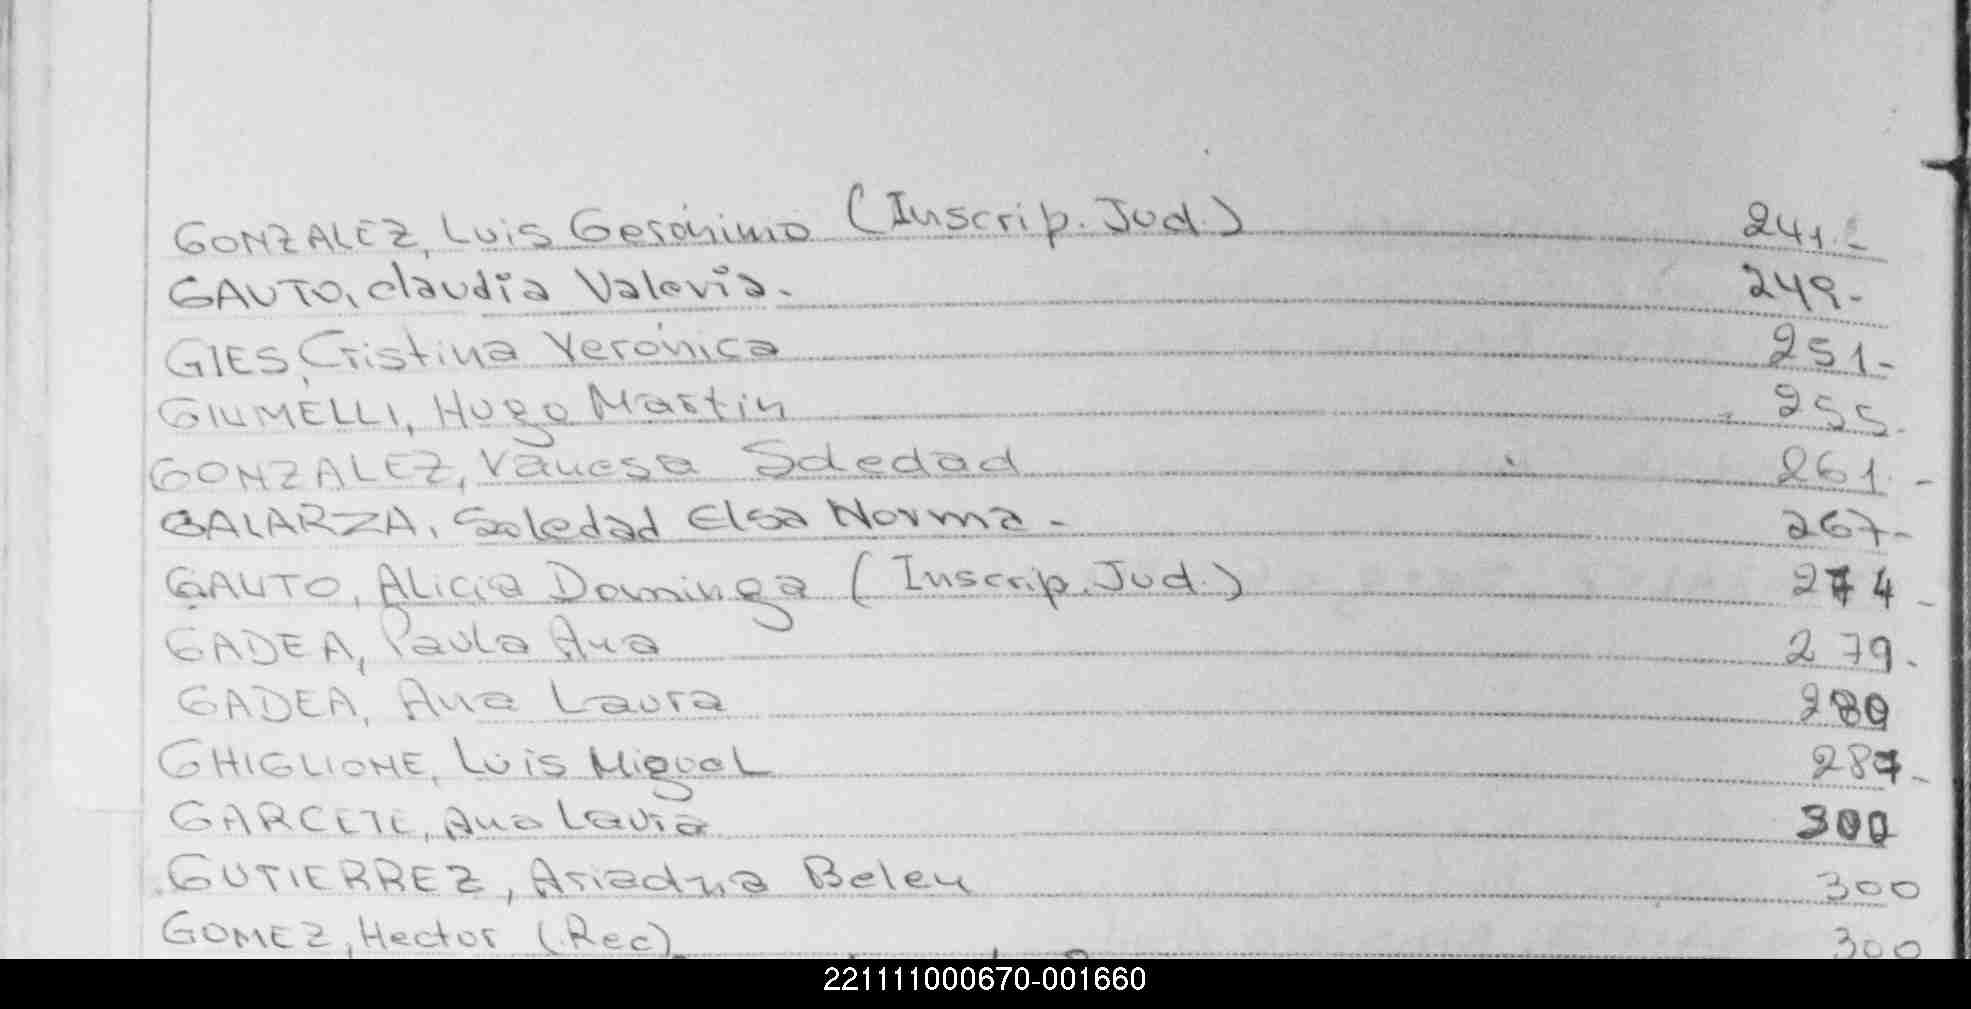 GONZALEZ, Luis Gerónimo (Inscrip. Jud.) 241.-
GAUTO, Claudia Valeria.- 249.-
GIES, Cristina Verónica 251-
GIUMELLI, Hugo Martin 255.
GONZALEZ, Vanesa Soledad 261.-
GALARZA, Soledad Elsa Norma- 267-
GAUTO, Alicia Dominga (Inscrip. Jud.) 274-
GADEA, Paula Ana 279.
GADEA, Ana Laura 280
GHIGLIONE, Luis Miguel 287-
GARCETE, Ana Laura 300
GUTIERREZ, Ariadna Belen 300
GOMEZ, Hector (Rec) 300
221111000670-001660